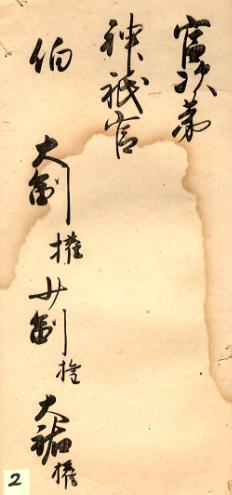 官次第
神祇官
伯
大副 権 少副 権 大祐 権
2